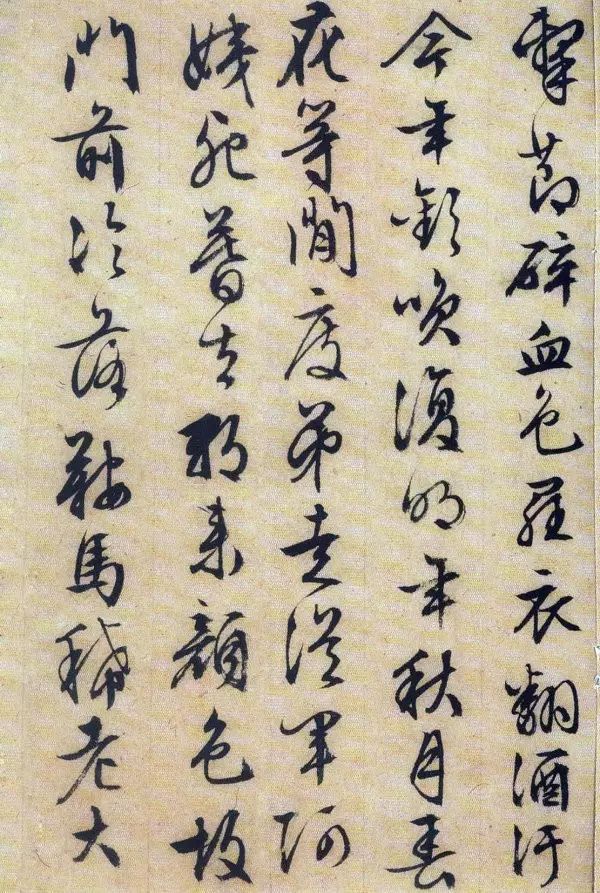 擊節碎血色羅衣翻酒汙
今年歡咲復明年秋月春
等閒度弟走從軍阿
姨死暮去朝来顔色故
門前冷落鞍馬稀老大